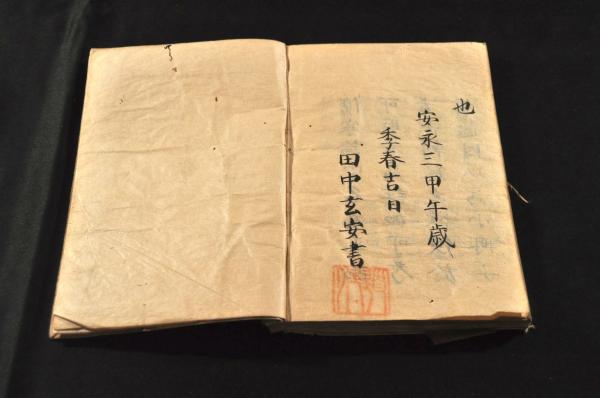 也
安永三甲午歳
季春吉日
田中玄安書